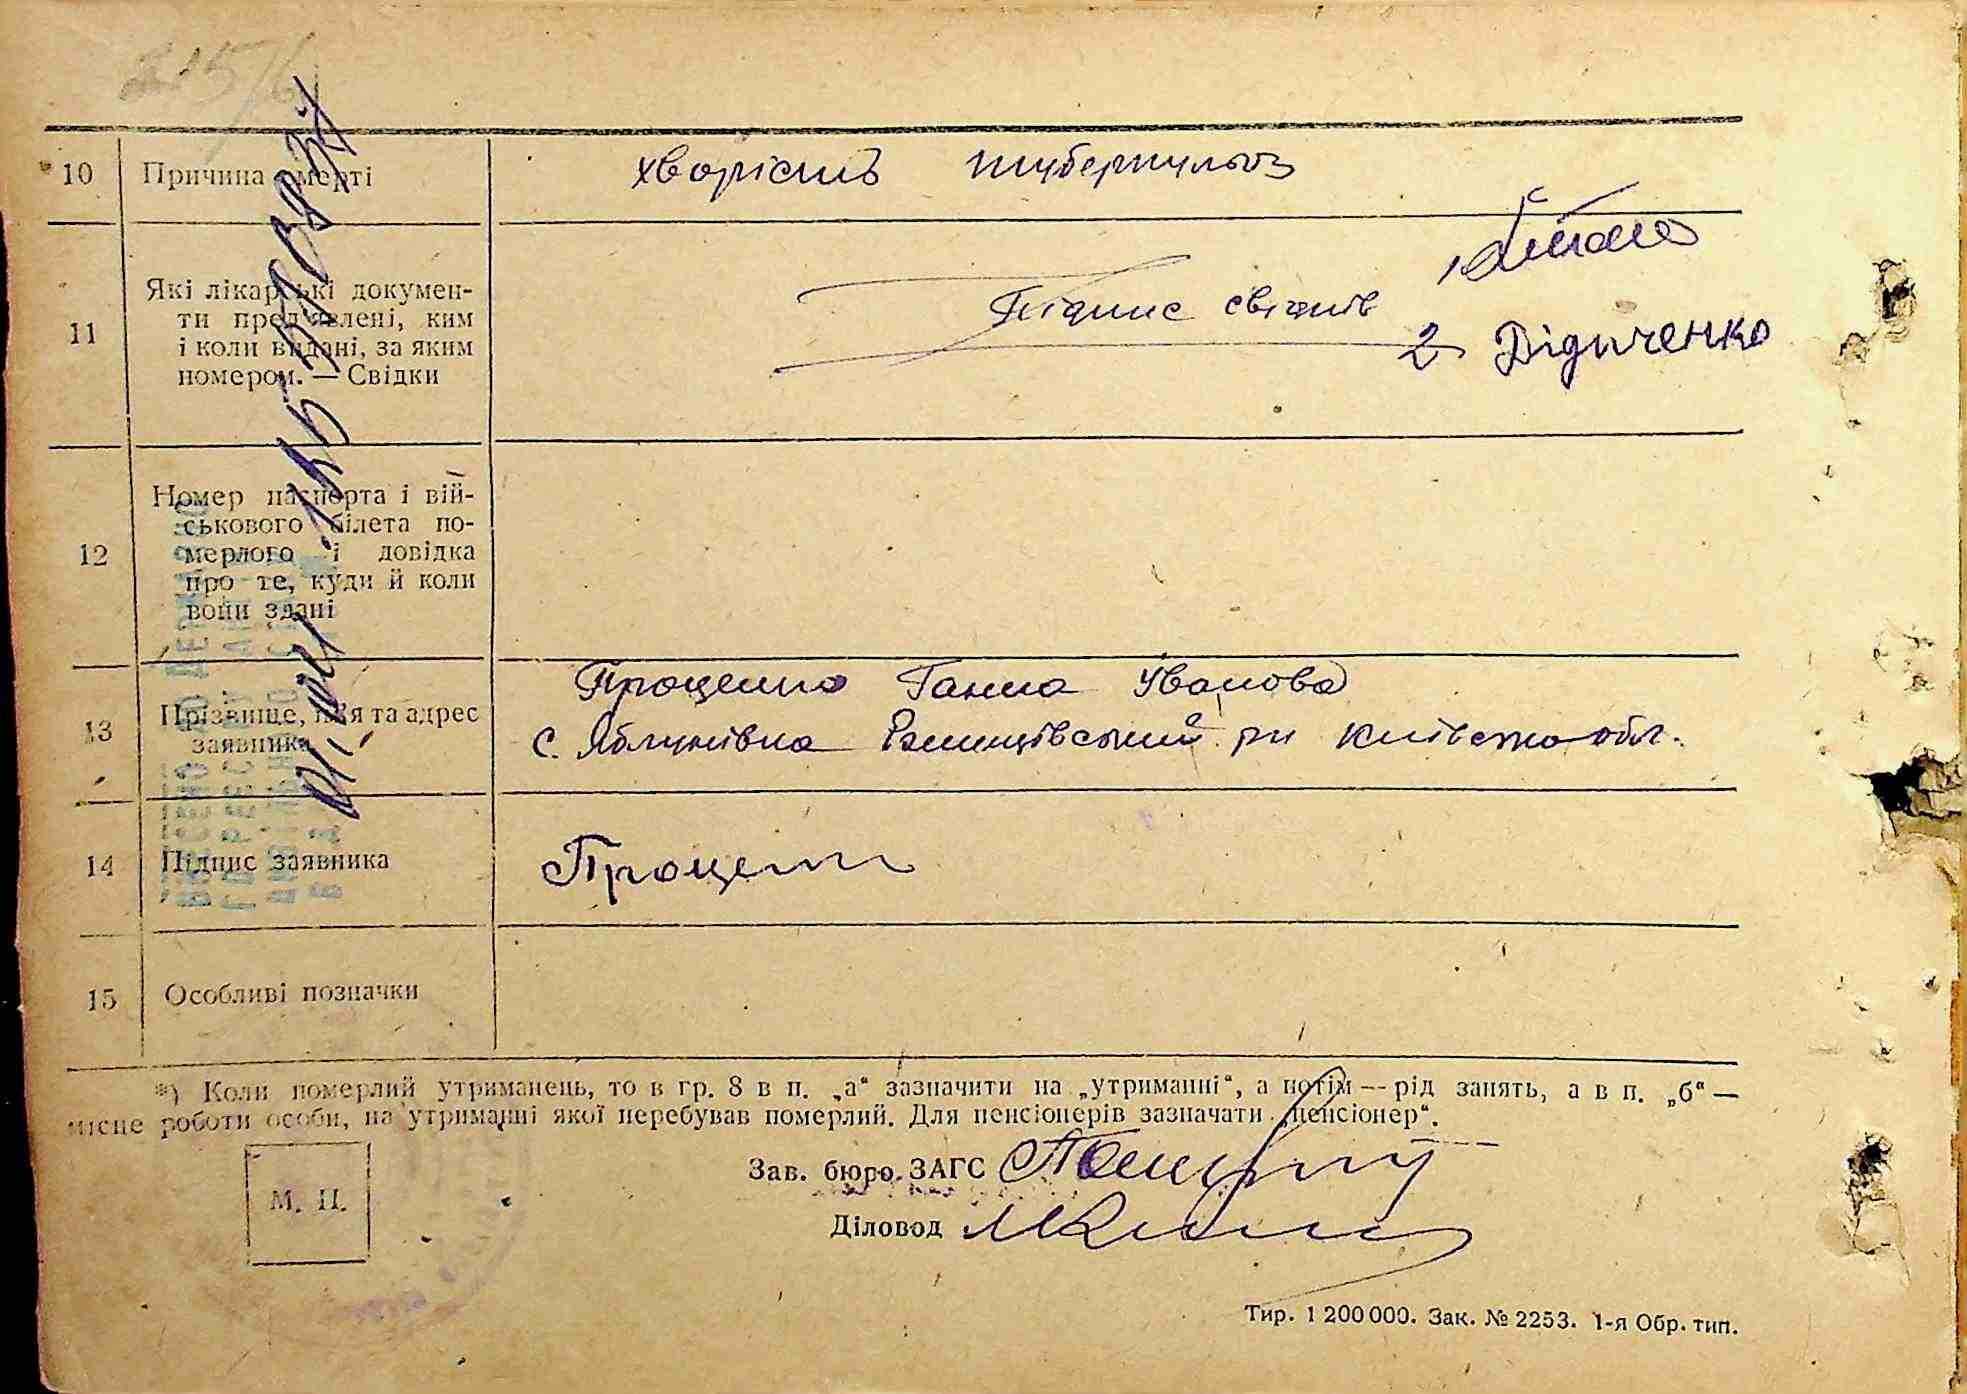 10 Причина смерті хворість туберкульоз
11 Які лікарські докумен-
ти пред'явлені, ким
і коли видані, за яким
номером. — Свідки
Підпис свідків
2 Відиченко
12 Номер паспорта і вій-
ськового білета по-
мерлого і довідка
про те, куди й коли
вони здані
13 Прізвище, ім'я та адрес
заявника
Проценко Ганна Іванова
с. Яблунівка Ржищівський рн Київська обл.
14 Підпис заявника Процен
15 Особливі позначки
*) Коли померлий утриманець, то в гр. 8 в п. „а“ зазначити на „утриманні“, а потім — рід занять, а в п. „б“ —
місце роботи особи, на утриманні якої перебував померлий. Для пенсіонерів зазначати „пенсіонер“.
М. П.
Зав. бюро ЗАГС
Діловод
Тир. 1 200 000. Зак. № 2253. 1-я Обр. тип.